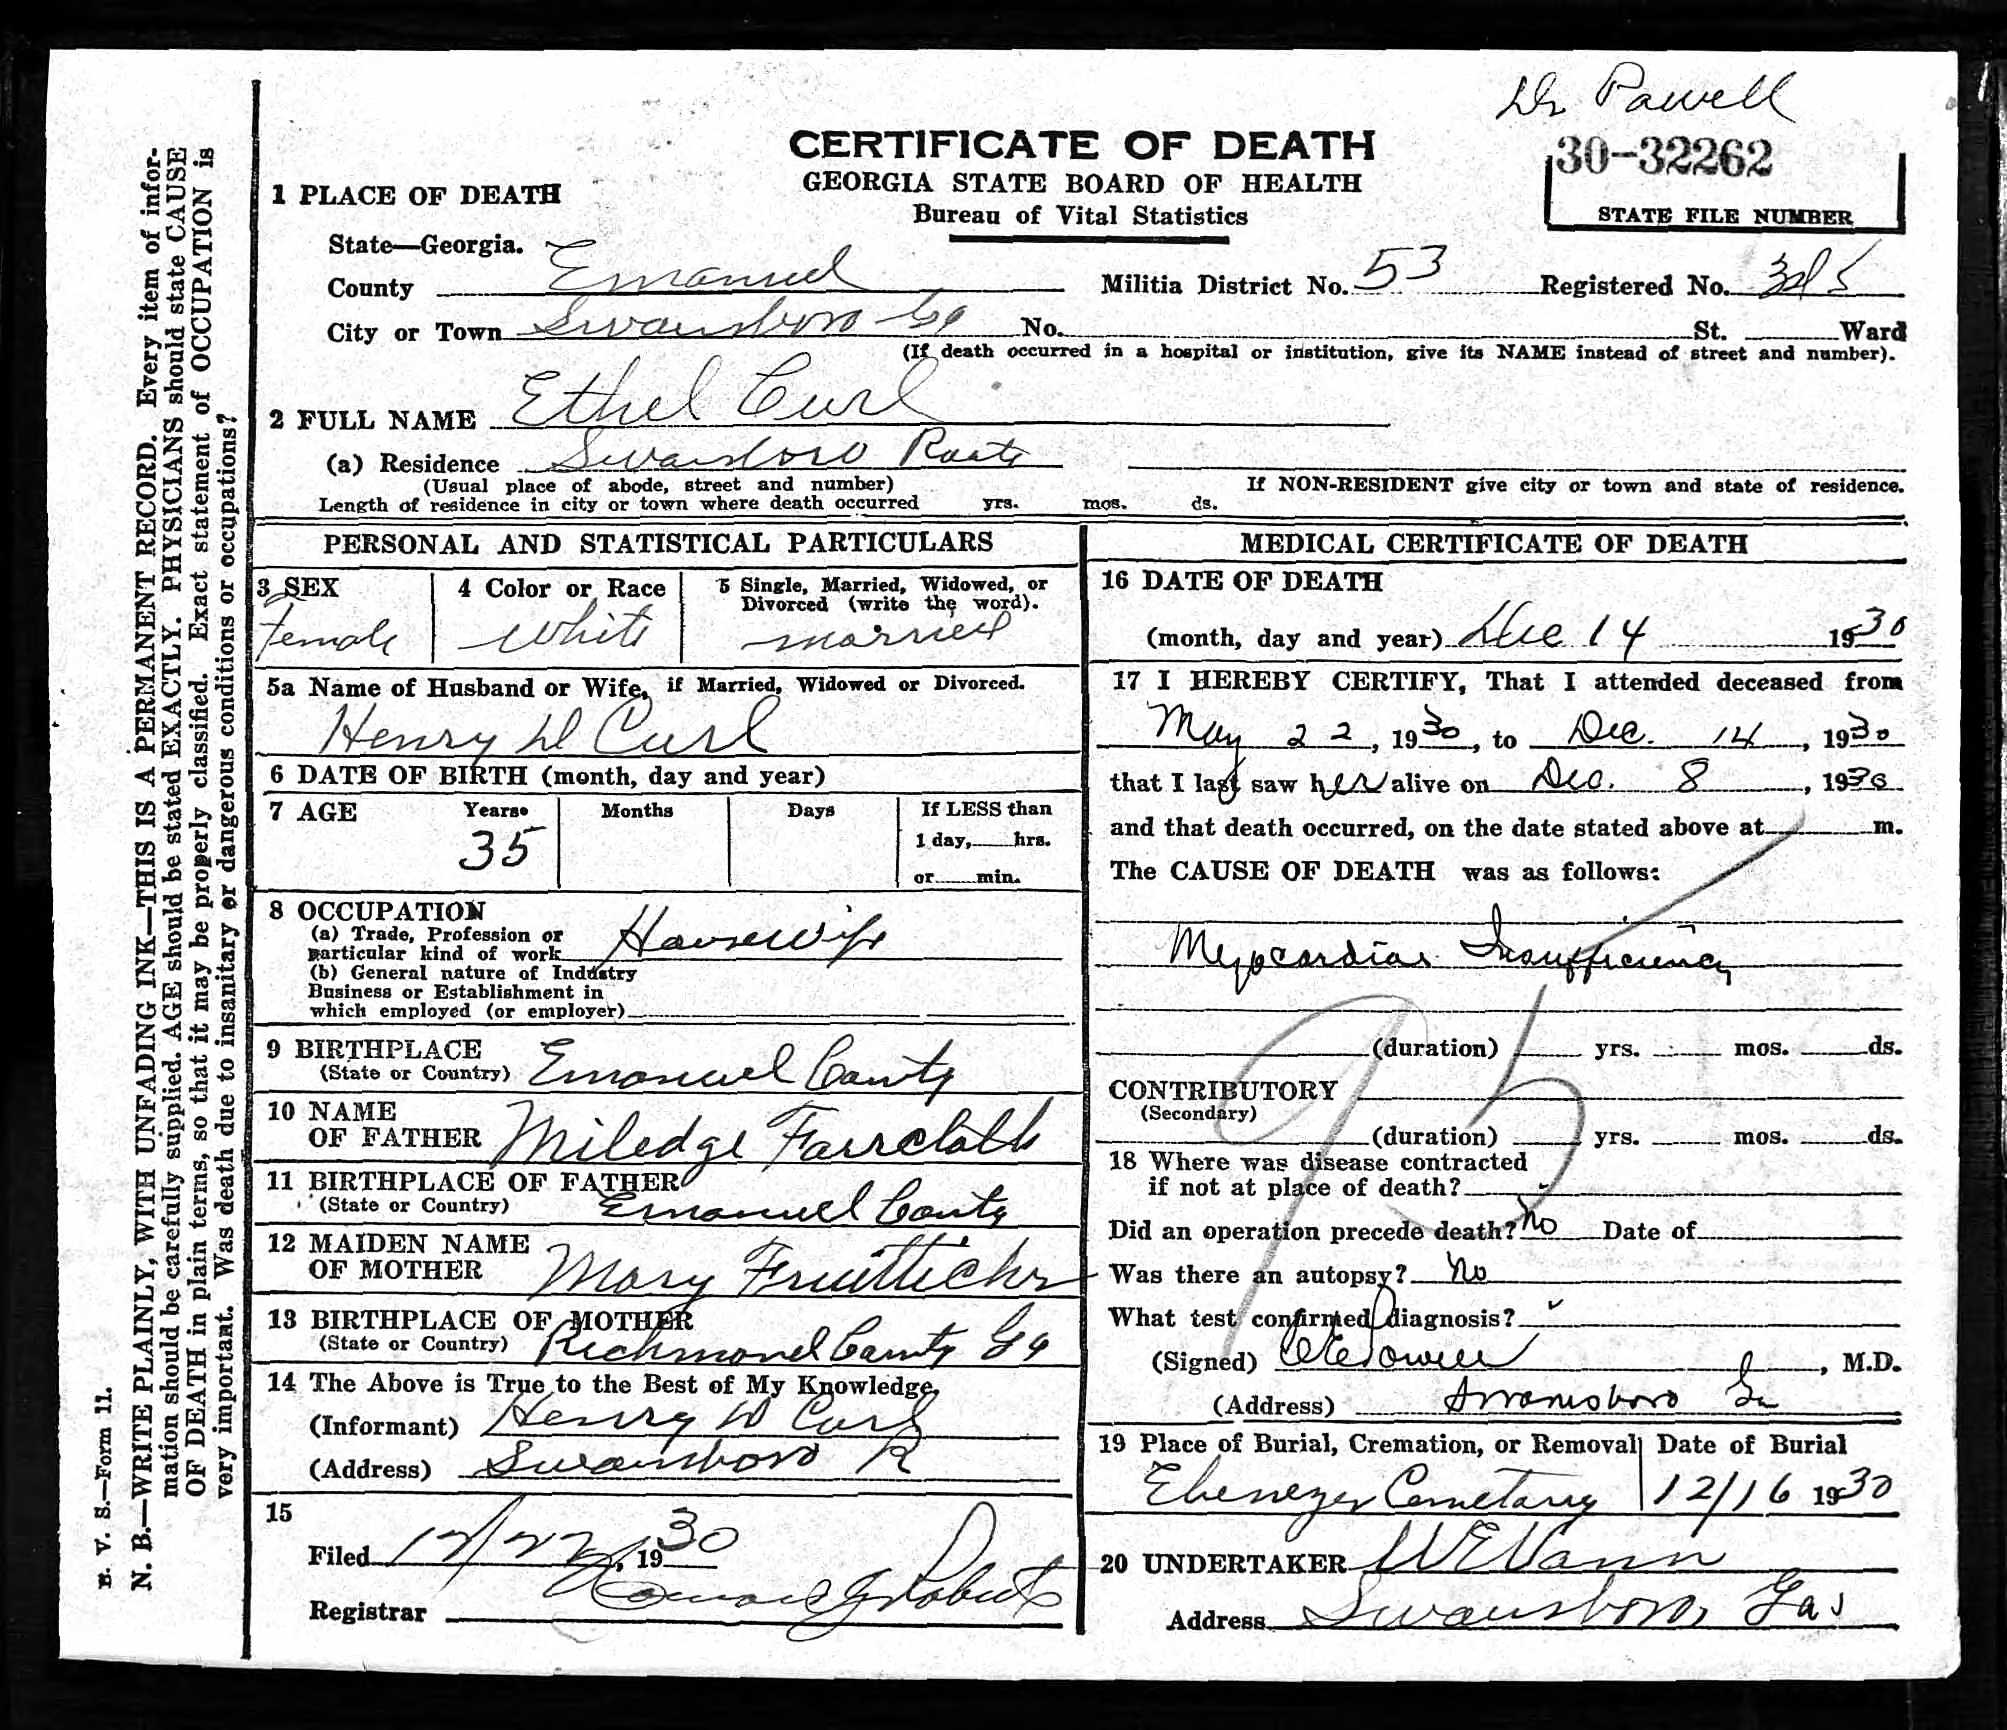 Dr Powell
CERTIFICATE OF DEATH
GEORGIA STATE BOARD OF HEALTH
Bureau of Vital Statistics
30-32262
STATE FILE NUMBER
1 PLACE OF DEATH
State—Georgia.
County Emanuel Militia District No. 53 Registered No.
City or Town Swainsboro Ga No. St. Ward
(If death occurred in a hospital or institution, give its NAME instead of street and number).
2 FULL NAME Ethel Curl
(a) Residence Swainsboro Route
(Usual place of abode, street and number) If NON-RESIDENT give city or town and state of residence.
Length of residence in city or town where death occurred yrs. mos. ds.
PERSONAL AND STATISTICAL PARTICULARS
3 SEX
Female
4 Color or Race
White
5 Single, Married, Widowed, or
Divorced (write the word).
married
5a Name of Husband or Wife, if Married, Widowed or Divorced.
Henry D Curl
6 DATE OF BIRTH (month, day and year)
7 AGE Years Months Days If LESS than
35 1 day, hrs.
or min.
8 OCCUPATION
(a) Trade, Profession or
particular kind of work Housewife
(b) General nature of Industry
Business or Establishment in
which employed (or employer)
9 BIRTHPLACE
(State or Country) Emanuel County
10 NAME
OF FATHER Miledge Faircloth
11 BIRTHPLACE OF FATHER
(State or Country) Emanuel County
12 MAIDEN NAME
OF MOTHER Mary
13 BIRTHPLACE OF MOTHER
(State or Country) Richmond County Ga
14 The Above is True to the Best of My Knowledge,
(Informant) Henry D Curl
(Address) Swainsboro R
15
Filed 12/22, 1930
Registrar
MEDICAL CERTIFICATE OF DEATH
16 DATE OF DEATH
(month, day and year) Dec 14 1930
17 I HEREBY CERTIFY, That I attended deceased from
May 22, 1930, to Dec. 14, 1930
that I last saw her alive on Dec. 8, 1930
and that death occurred, on the date stated above at m.
The CAUSE OF DEATH was as follows:
Myocardial Insufficiency
(duration) yrs. mos. ds.
CONTRIBUTORY
(Secondary)
(duration) yrs. mos. ds.
95
18 Where was disease contracted
if not at place of death?
Did an operation precede death? No Date of
Was there an autopsy? No
What test confirmed diagnosis?
(Signed) Powell, M.D.
(Address) Swainsboro Ga
19 Place of Burial, Cremation, or Removal Date of Burial
Ebenezer Cemetary 12/16 1930
20 UNDERTAKER W E Vann
Address Swainsboro, Ga
B. V. S.—Form 11.
N. B.—WRITE PLAINLY, WITH UNFADING INK—THIS IS A PERMANENT RECORD. Every item of infor-
mation should be carefully supplied. AGE should be stated EXACTLY. PHYSICIANS should state CAUSE
OF DEATH in plain terms, so that it may be properly classified. Exact statement of OCCUPATION is
very important. Was death due to insanitary or dangerous conditions or occupations?